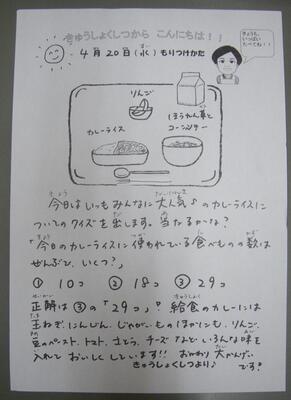 きゅうしょくしつから こんにちは！！
4月20日(水) もりつけかた
きょうも、
いっぱい
たべてね！！
りんご
カレーライス
ほうれん草と
コーンソテー
今日はいつもみんなに大人気♪のカレーライスに
ついてのクイズを出します。当たるかな？
「今日のカレーライスに使われている食べものの数は
ぜんぶで、いくつ？」
① 10コ ② 18コ ③ 29コ
正解は③の「29コ」？給食のカレーには
玉ねぎ、にんじん、じゃがいものほかにも、りんご、
豆のペースト、トマト、さとう、チーズなどいろんな味を
入れておいしくしています!! おかわり大かんげい
です！
きゅうしょくしつより♪